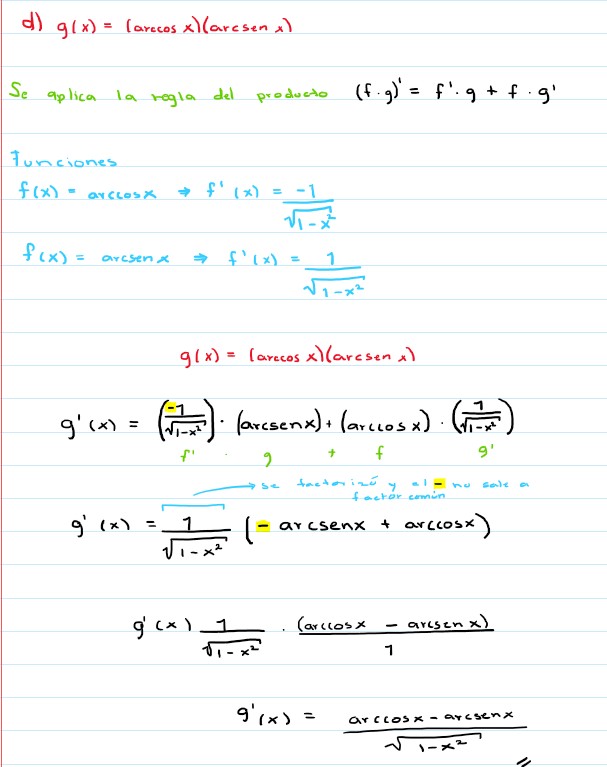 d) g(x) = (arccos x)(arcsen x)
Se aplica la regla del producto (f·g)' = f'·g + f·g'
Funciones
f(x) = arccosx ⇒ f'(x) = -1/√(1-x²)
f(x) = arcsenx ⇒ f'(x) = 1/√(1-x²)
g(x) = (arccos x)(arcsen x)
g'(x) = (-1/√(1-x²)) · (arcsenx) + (arccosx) · (1/√(1-x²))
f' · g + f g'
→ se factorizó y el - no sale a
factor común
g'(x) = 1/√(1-x²) (- arcsenx + arccosx)
g'(x) 1/√(1-x²) · (arccosx - arcsenx)/1
g'(x) = arccosx - arcsenx/√(1-x²) //